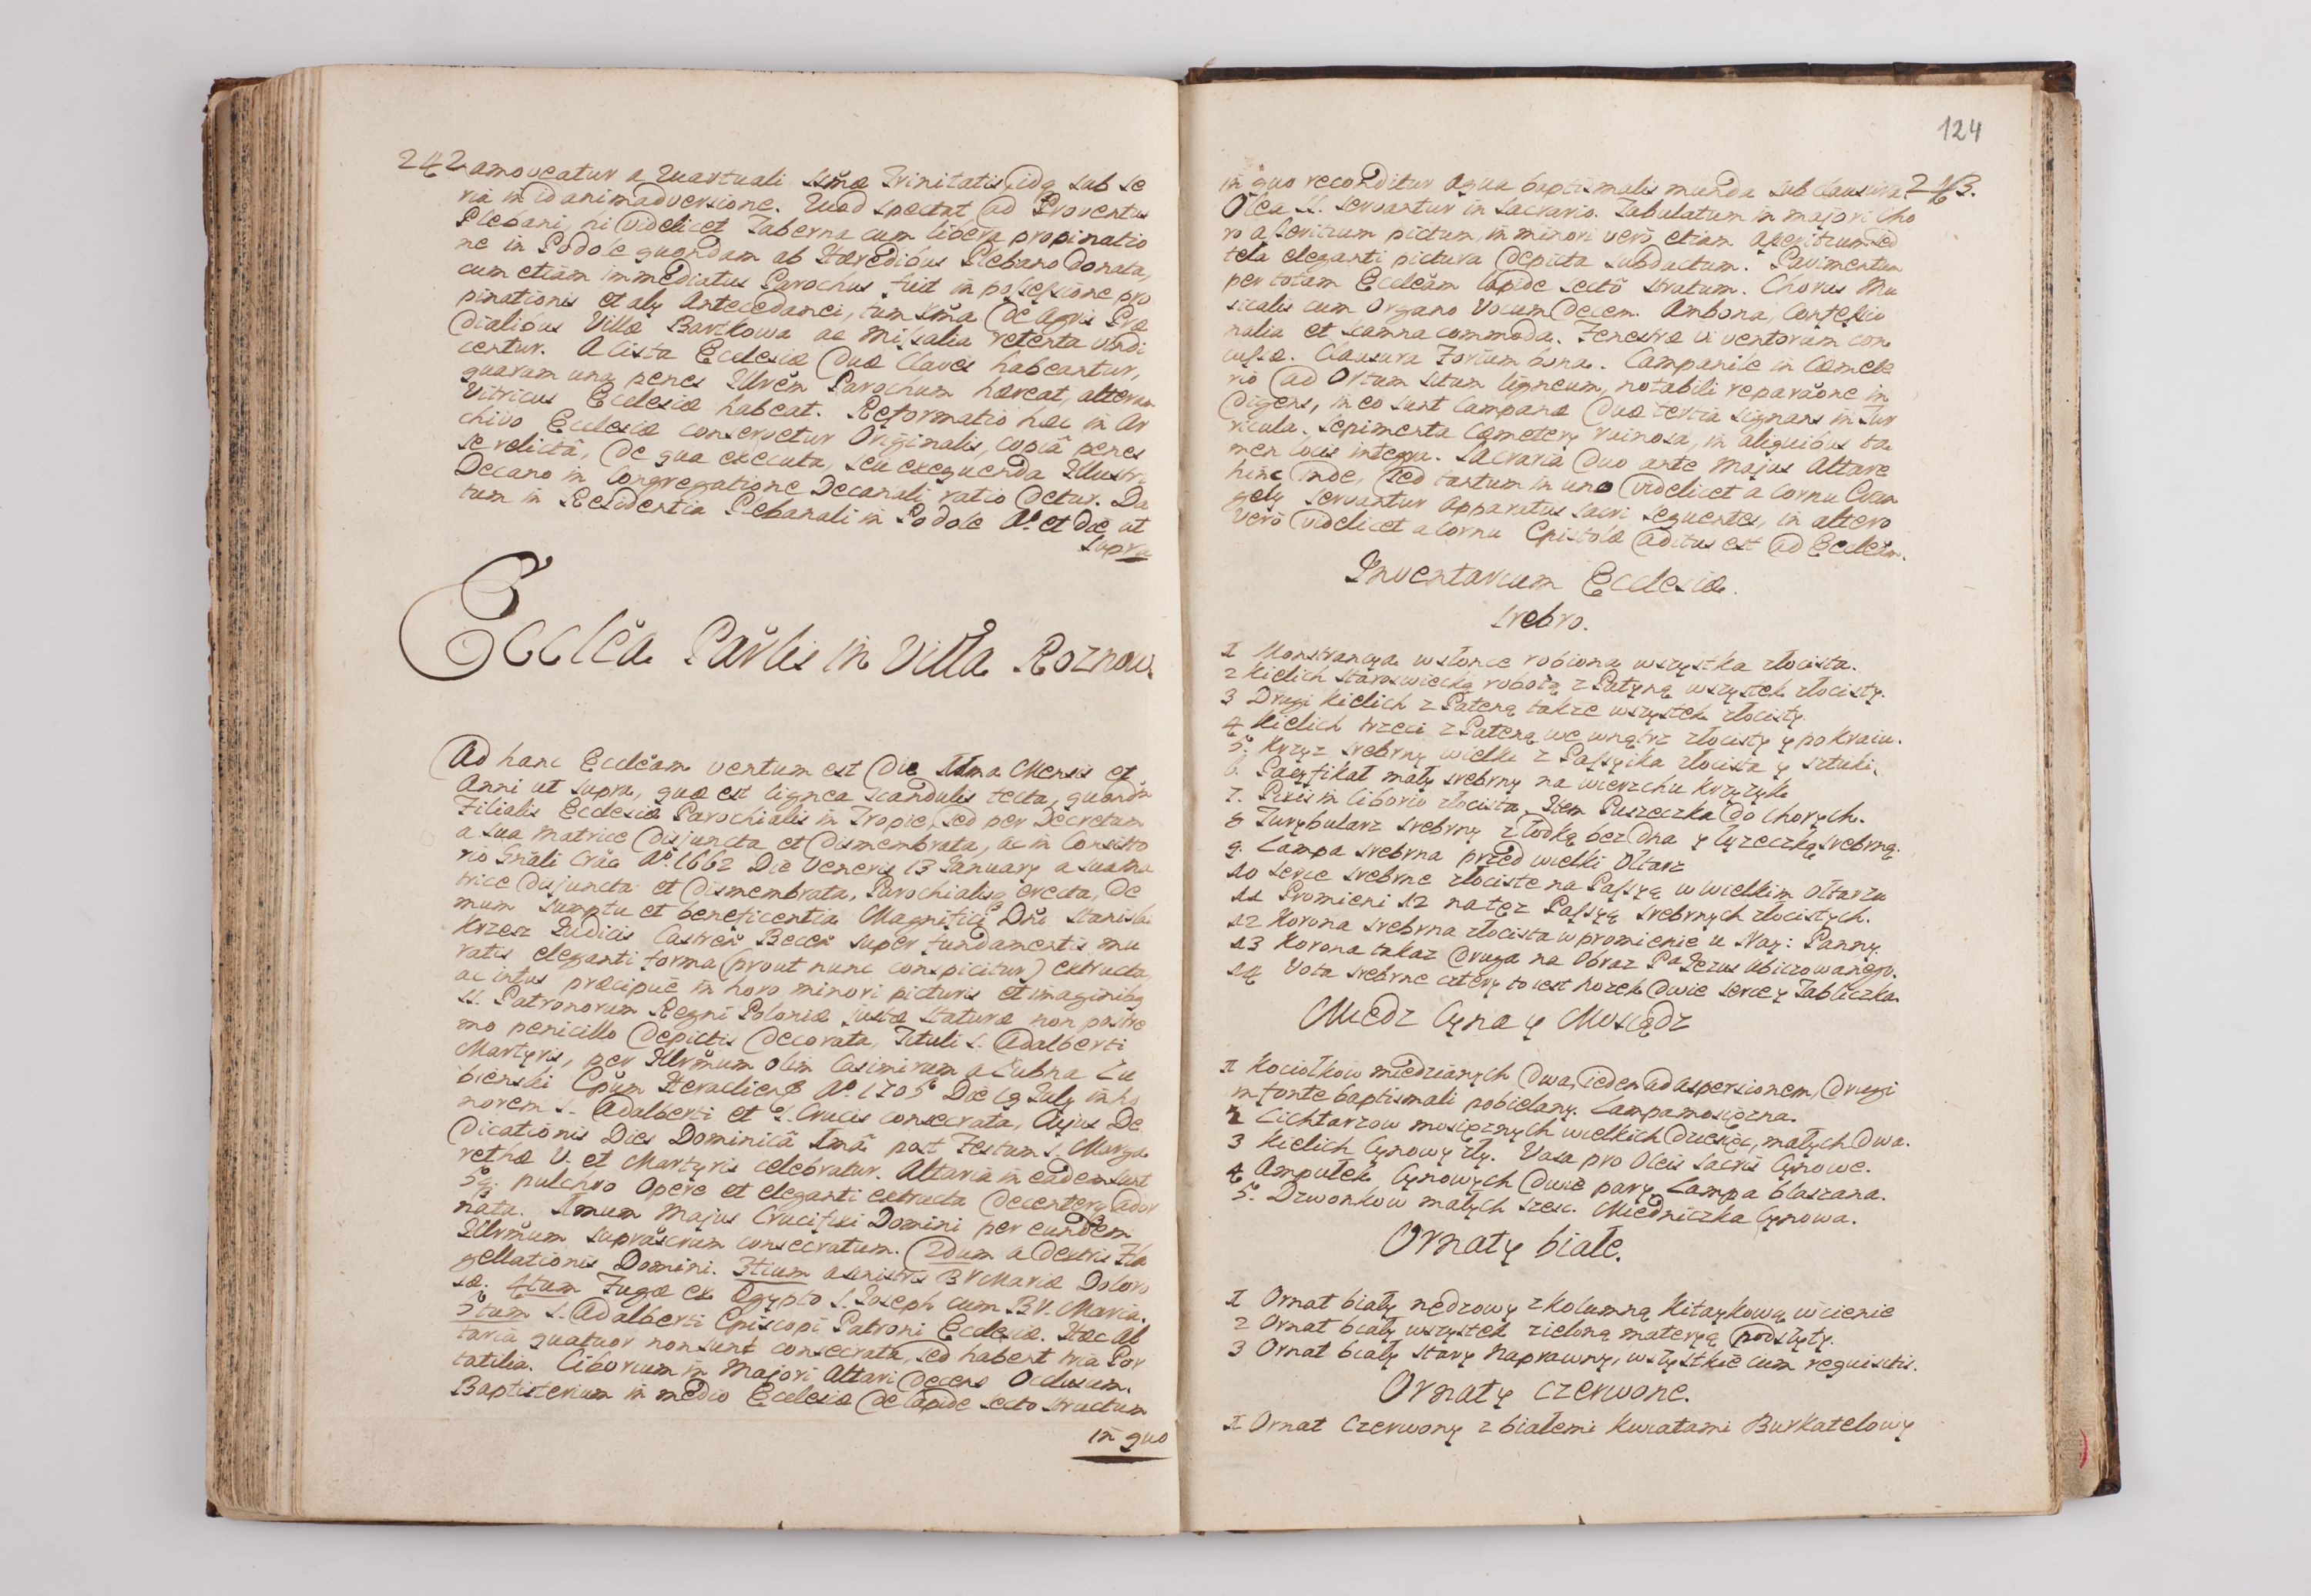 242 amoveatur a Quartuali SSmæ Trinitatis, idq sub se
ria in id animadversione. Quod spectat ad Proventus
Plebani, hi videlicet Taberna cum libera propinatio
ne in Podole quondam ab Hæredibus Plebano donata,
cum etiam immediatus Parochus fuit in possessione pro
pinationis et alÿ Antecedanei, tum de Agris Præ
dialibus Villæ Bartkowa ac Missalia retenta vindi
centur. A Cista Ecclesiæ duæ Claves habeantur,
quarum una penes Illrem Parochum hæreat, alteram
Vitricus Ecclesiæ habeat. Reformatio hæc in Ar
chivo Ecclesiæ conservetur Originalis, copiâ penes
se relictâ, de qua executa, seu exequenda Illustri
Decano in Congregatione Decanali ratio detur. Da
tum in Residentia Plebanali in Podole Ao et die ut
supra
Ecclca Parlis in Villa Roznow.
Ad hanc Eccleam ventum est Die Mensis et
Anni ut supra, quæ est lignea scandulis tecta, quonda
Filialis Ecclesiæ Parochialis in Tropie, sed per Decretum
a sua Matrice disjuncta et dismembrata, ac in Consisto
rio Gnali Crac Ao 1662 Die Veneris 13 Januarÿ a sua Ma
trice disjuncta et dismembrata, Parochialisq erecta, de
mum sumptu et beneficentia Magnifici Dni Stanislai
Krzesz Judicis Castren Becen super fundamentis mu
ratis eleganti forma (prout nunc conspicitur) extructa,
ac intus præcipue in horo minori picturis et imaginibq
SS. Patronorum Regni Poloniæ justæ staturæ non postre
mo penicillo depictis decorata, Tituli S. Adalberti
Martyris, per Illrmum olim Casimirum a Łubna Łu
bienski Epum Heraclien Ao 1705 Die 19 Julÿ in ho
norem S. Adalberti et S. Crucis consecrata, Cujus De
dicationis Dies Dominicâ Imâ post Festum S. Marga
rethæ V. et Martyris celebratur. Altaria in eadem sunt
5q. pulchro Opere et eleganti extructa decenterq ador
nata. Imum Majus Crucifixi Domini per eundem
Illrmum suprascrum consecratum. 2dum a dextris Fla
gellationis Domini. 3tium a sinistris BV Mariæ Doloro
sæ. 4tum Fugæ ex Ægypto S. Joseph cum BV. Maria.
5tum S. Adalberti Episcopi Patroni Ecclesiæ. Hæc Al
taria quatuor non sunt consecrata, sed habent tria Por
tatilia. Ciborium in Majori Altari decens Occlusum.
Baptisterium in medio Ecclesiæ de lapide secto structum
in quo
124
in quo reconditur Aqua baptismalis munda sub clausura. 243.
Olea SS. servantur in Sacrario. Tabulatum in majori Cho
ro Asseritium pictum, in minori vero, etiam Aseritium sed
tela eleganti pictura depicta subductum. Pavimentum
per totam Eccleam lapide secto stratum. Chorus Mu
sicalis cum Organo Vocum decem. Ambona, Confessio
nalia et scamna commoda. Fenestræ vi ventorum con
cussæ. Clausura Forium bona. Campanile in Cæmete
rio ad Ortum situm ligneum, notabili reparaone in
digens, in eo sunt Campanæ duæ tertia signans in Tur
ricula. Sepimenta Cæmeterÿ ruinosa, in aliquibus ta
men locis integra. Sacraria duo ante Majus Altare
hinc inde, sed tantum in uno videlicet a Cornu Evan
gelÿ servantur Apparatus sacri sequentes, in altero
vero videlicet a Cornu Epistolæ aditus est ad Eccleam.
Inventarium Ecclesiæ.
Srebro.
1 Monstrancya w słonce robiona wszystka złocista.
2 Kielich staroswiecką robotą z Patyną wszystek złocisty.
3 Drugi Kielich z Pateną takze wszystek złocisty.
4 Kielich trzeci z Pateną we wnątrz złocisty y po kraiu.
5. Krzyz srebrny wielki z Passyika złocista y sztuki.
6. Pacyfikał mały srebrny na wierzchu krzyzyk.
7. Pixis in Ciborio złocista. Item Puszeczka do Chorych.
8 Turybularz srebrny z łodką bez dna y łyzeczką srebrną.
9. Lampa srebrna przed wielki Ołtarz
10 Serce srebrne złociste na Passyą w wielkim Ołtarzu
11 Promieni 12 na tęz Passyą srebrnych złocistych.
12 Korona srebrna złocista w promienie u Nay: Panny.
13 Korona takaz druga na Obraz Pa Jezus Ubiczowanego.
14 Vota srebrne cztery to iest nozek dwie serce y Tabliczka.
Miedz Cyna y Mosiądz
1 Kociołkow miedzianych dwa, ieden ad Aspersionem, drugi
in fonte baptismali pobielany. Lampa mosięzna.
2 Lichtarzow mosięznych wielkich dziesięć, małych dwa.
3 Kielich Cynowy zły. Vasa pro Oleis Sacris Cynowe.
4 Ampułek Cynowych dwie pary. Lampa blaszana.
5. Dzwonkow małych szesc. Miedniczka Cynowa.
Ornaty białe.
1 Ornat biały nędzowy z kolumną Kitaykową w cienie
2 Ornat biały wszystek zieloną materyą podszyty.
3 Ornat biały stary Naprawny, wszystkie cum requisitis.
Ornaty Czerwone.
1 Ornat Czerwony z białemi kwiatami Burkatelowy